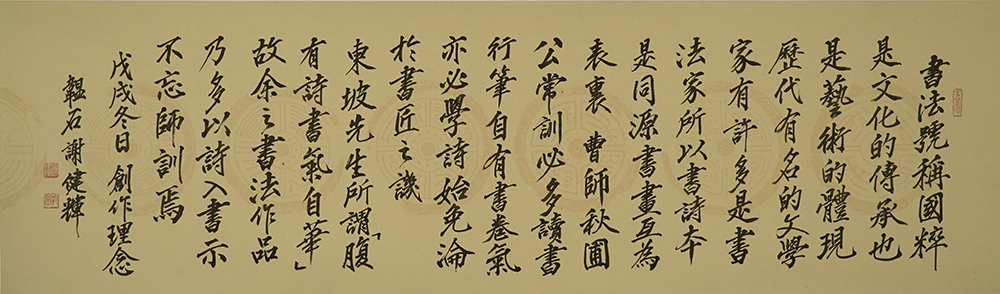 書法號稱國粹
是文化的傳承也
是藝術的體現
歷代有名的文學
家有許多是書
法家所以書詩本
是同源書畫互為
表裏 曹師秋圃
公常訓必多讀書
行筆自有書卷氣
亦必學詩始免淪
於書匠之譏
東坡先生所謂「腹
有詩書氣自華」
故余之書法作品
乃多以詩入書示
不忘師訓焉
戊戌冬日 創作理念
韞石 謝健輝